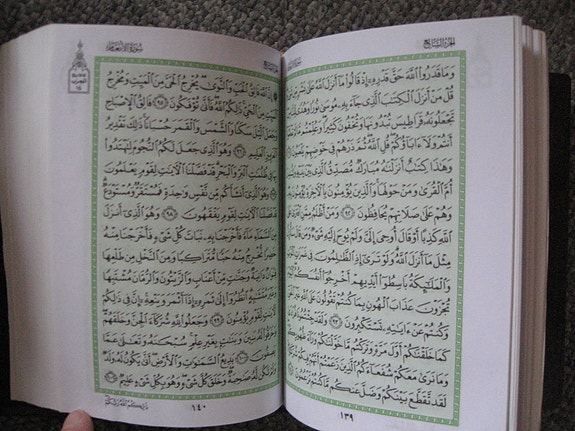 الجزء السابع
سورة الأنعام
وَمَا قَدَرُوا اللَّهَ حَقَّ قَدْرِهِ إِذْ قَالُوا مَا أَنزَلَ اللَّهُ عَلَىٰ بَشَرٍ مِّن شَيْءٍ
قُلْ مَنْ أَنزَلَ الْكِتَٰبَ الَّذِي جَاءَ بِهِ مُوسَىٰ نُورًا وَهُدًى لِّلنَّاسِ
تَجْعَلُونَهُ قَرَاطِيسَ تُبْدُونَهَا وَتُخْفُونَ كَثِيرًا وَعُلِّمْتُم مَّا لَمْ تَعْلَمُوا
أَنتُمْ وَلَا ءَابَاؤُكُمْ قُلِ اللَّهُ ثُمَّ ذَرْهُمْ فِي خَوْضِهِمْ يَلْعَبُونَ ٩١
وَهَٰذَا كِتَٰبٌ أَنزَلْنَٰهُ مُبَارَكٌ مُّصَدِّقُ الَّذِي بَيْنَ يَدَيْهِ وَلِتُنذِرَ
أُمَّ الْقُرَىٰ وَمَنْ حَوْلَهَا وَالَّذِينَ يُؤْمِنُونَ بِالْءَاخِرَةِ يُؤْمِنُونَ بِهِ
وَهُمْ عَلَىٰ صَلَاتِهِمْ يُحَافِظُونَ ٩٢ وَمَنْ أَظْلَمُ مِمَّنِ افْتَرَىٰ عَلَى
اللَّهِ كَذِبًا أَوْ قَالَ أُوحِيَ إِلَيَّ وَلَمْ يُوحَ إِلَيْهِ شَيْءٌ وَمَن قَالَ سَأُنزِلُ
مِثْلَ مَا أَنزَلَ اللَّهُ وَلَوْ تَرَىٰ إِذِ الظَّٰلِمُونَ فِي غَمَرَٰتِ الْمَوْتِ
وَالْمَلَٰئِكَةُ بَاسِطُوا أَيْدِيهِمْ أَخْرِجُوا أَنفُسَكُمُ الْيَوْمَ
تُجْزَوْنَ عَذَابَ الْهُونِ بِمَا كُنتُمْ تَقُولُونَ عَلَى اللَّهِ غَيْرَ الْحَقِّ
وَكُنتُمْ عَنْ ءَايَٰتِهِ تَسْتَكْبِرُونَ ٩٣ وَلَقَدْ جِئْتُمُونَا فُرَٰدَىٰ
كَمَا خَلَقْنَٰكُمْ أَوَّلَ مَرَّةٍ وَتَرَكْتُم مَّا خَوَّلْنَٰكُمْ وَرَاءَ ظُهُورِكُمْ
وَمَا نَرَىٰ مَعَكُمْ شُفَعَاءَكُمُ الَّذِينَ زَعَمْتُمْ أَنَّهُمْ فِيكُمْ شُرَكَٰؤُا
لَقَد تَّقَطَّعَ بَيْنَكُمْ وَضَلَّ عَنكُم مَّا كُنتُمْ تَزْعُمُونَ ٩٤
١٣٩
سورة الأنعام
إِنَّ اللَّهَ فَالِقُ الْحَبِّ وَالنَّوَىٰ يُخْرِجُ الْحَيَّ مِنَ الْمَيِّتِ وَمُخْرِجُ
الْمَيِّتِ مِنَ الْحَيِّ ذَٰلِكُمُ اللَّهُ فَأَنَّىٰ تُؤْفَكُونَ ٩٥ فَالِقُ الْإِصْبَاحِ
وَجَعَلَ الَّيْلَ سَكَنًا وَالشَّمْسَ وَالْقَمَرَ حُسْبَانًا ذَٰلِكَ تَقْدِيرُ
الْعَزِيزِ الْعَلِيمِ ٩٦ وَهُوَ الَّذِي جَعَلَ لَكُمُ النُّجُومَ لِتَهْتَدُوا
بِهَا فِي ظُلُمَٰتِ الْبَرِّ وَالْبَحْرِ قَدْ فَصَّلْنَا الْءَايَٰتِ لِقَوْمٍ يَعْلَمُونَ
٩٧ وَهُوَ الَّذِي أَنشَأَكُم مِّن نَّفْسٍ وَٰحِدَةٍ فَمُسْتَقَرٌّ وَمُسْتَوْدَعٌ
قَدْ فَصَّلْنَا الْءَايَٰتِ لِقَوْمٍ يَفْقَهُونَ ٩٨ وَهُوَ الَّذِي أَنزَلَ
مِنَ السَّمَاءِ مَاءً فَأَخْرَجْنَا بِهِ نَبَاتَ كُلِّ شَيْءٍ فَأَخْرَجْنَا مِنْهُ
خَضِرًا نُّخْرِجُ مِنْهُ حَبًّا مُّتَرَاكِبًا وَمِنَ النَّخْلِ مِن طَلْعِهَا
قِنْوَانٌ دَانِيَةٌ وَجَنَّٰتٍ مِّنْ أَعْنَابٍ وَالزَّيْتُونَ وَالرُّمَّانَ مُشْتَبِهًا
وَغَيْرَ مُتَشَٰبِهٍ انظُرُوا إِلَىٰ ثَمَرِهِ إِذَا أَثْمَرَ وَيَنْعِهِ إِنَّ فِي ذَٰلِكُمْ
لَءَايَٰتٍ لِّقَوْمٍ يُؤْمِنُونَ ٩٩ وَجَعَلُوا لِلَّهِ شُرَكَاءَ الْجِنَّ وَخَلَقَهُمْ
وَخَرَقُوا لَهُ بَنِينَ وَبَنَٰتٍ بِغَيْرِ عِلْمٍ سُبْحَٰنَهُ وَتَعَٰلَىٰ عَمَّا
يَصِفُونَ ١٠٠ بَدِيعُ السَّمَٰوَٰتِ وَالْأَرْضِ أَنَّىٰ يَكُونُ لَهُ وَلَدٌ
وَلَمْ تَكُن لَّهُ صَٰحِبَةٌ وَخَلَقَ كُلَّ شَيْءٍ وَهُوَ بِكُلِّ شَيْءٍ عَلِيمٌ ١٠١
١٤٠